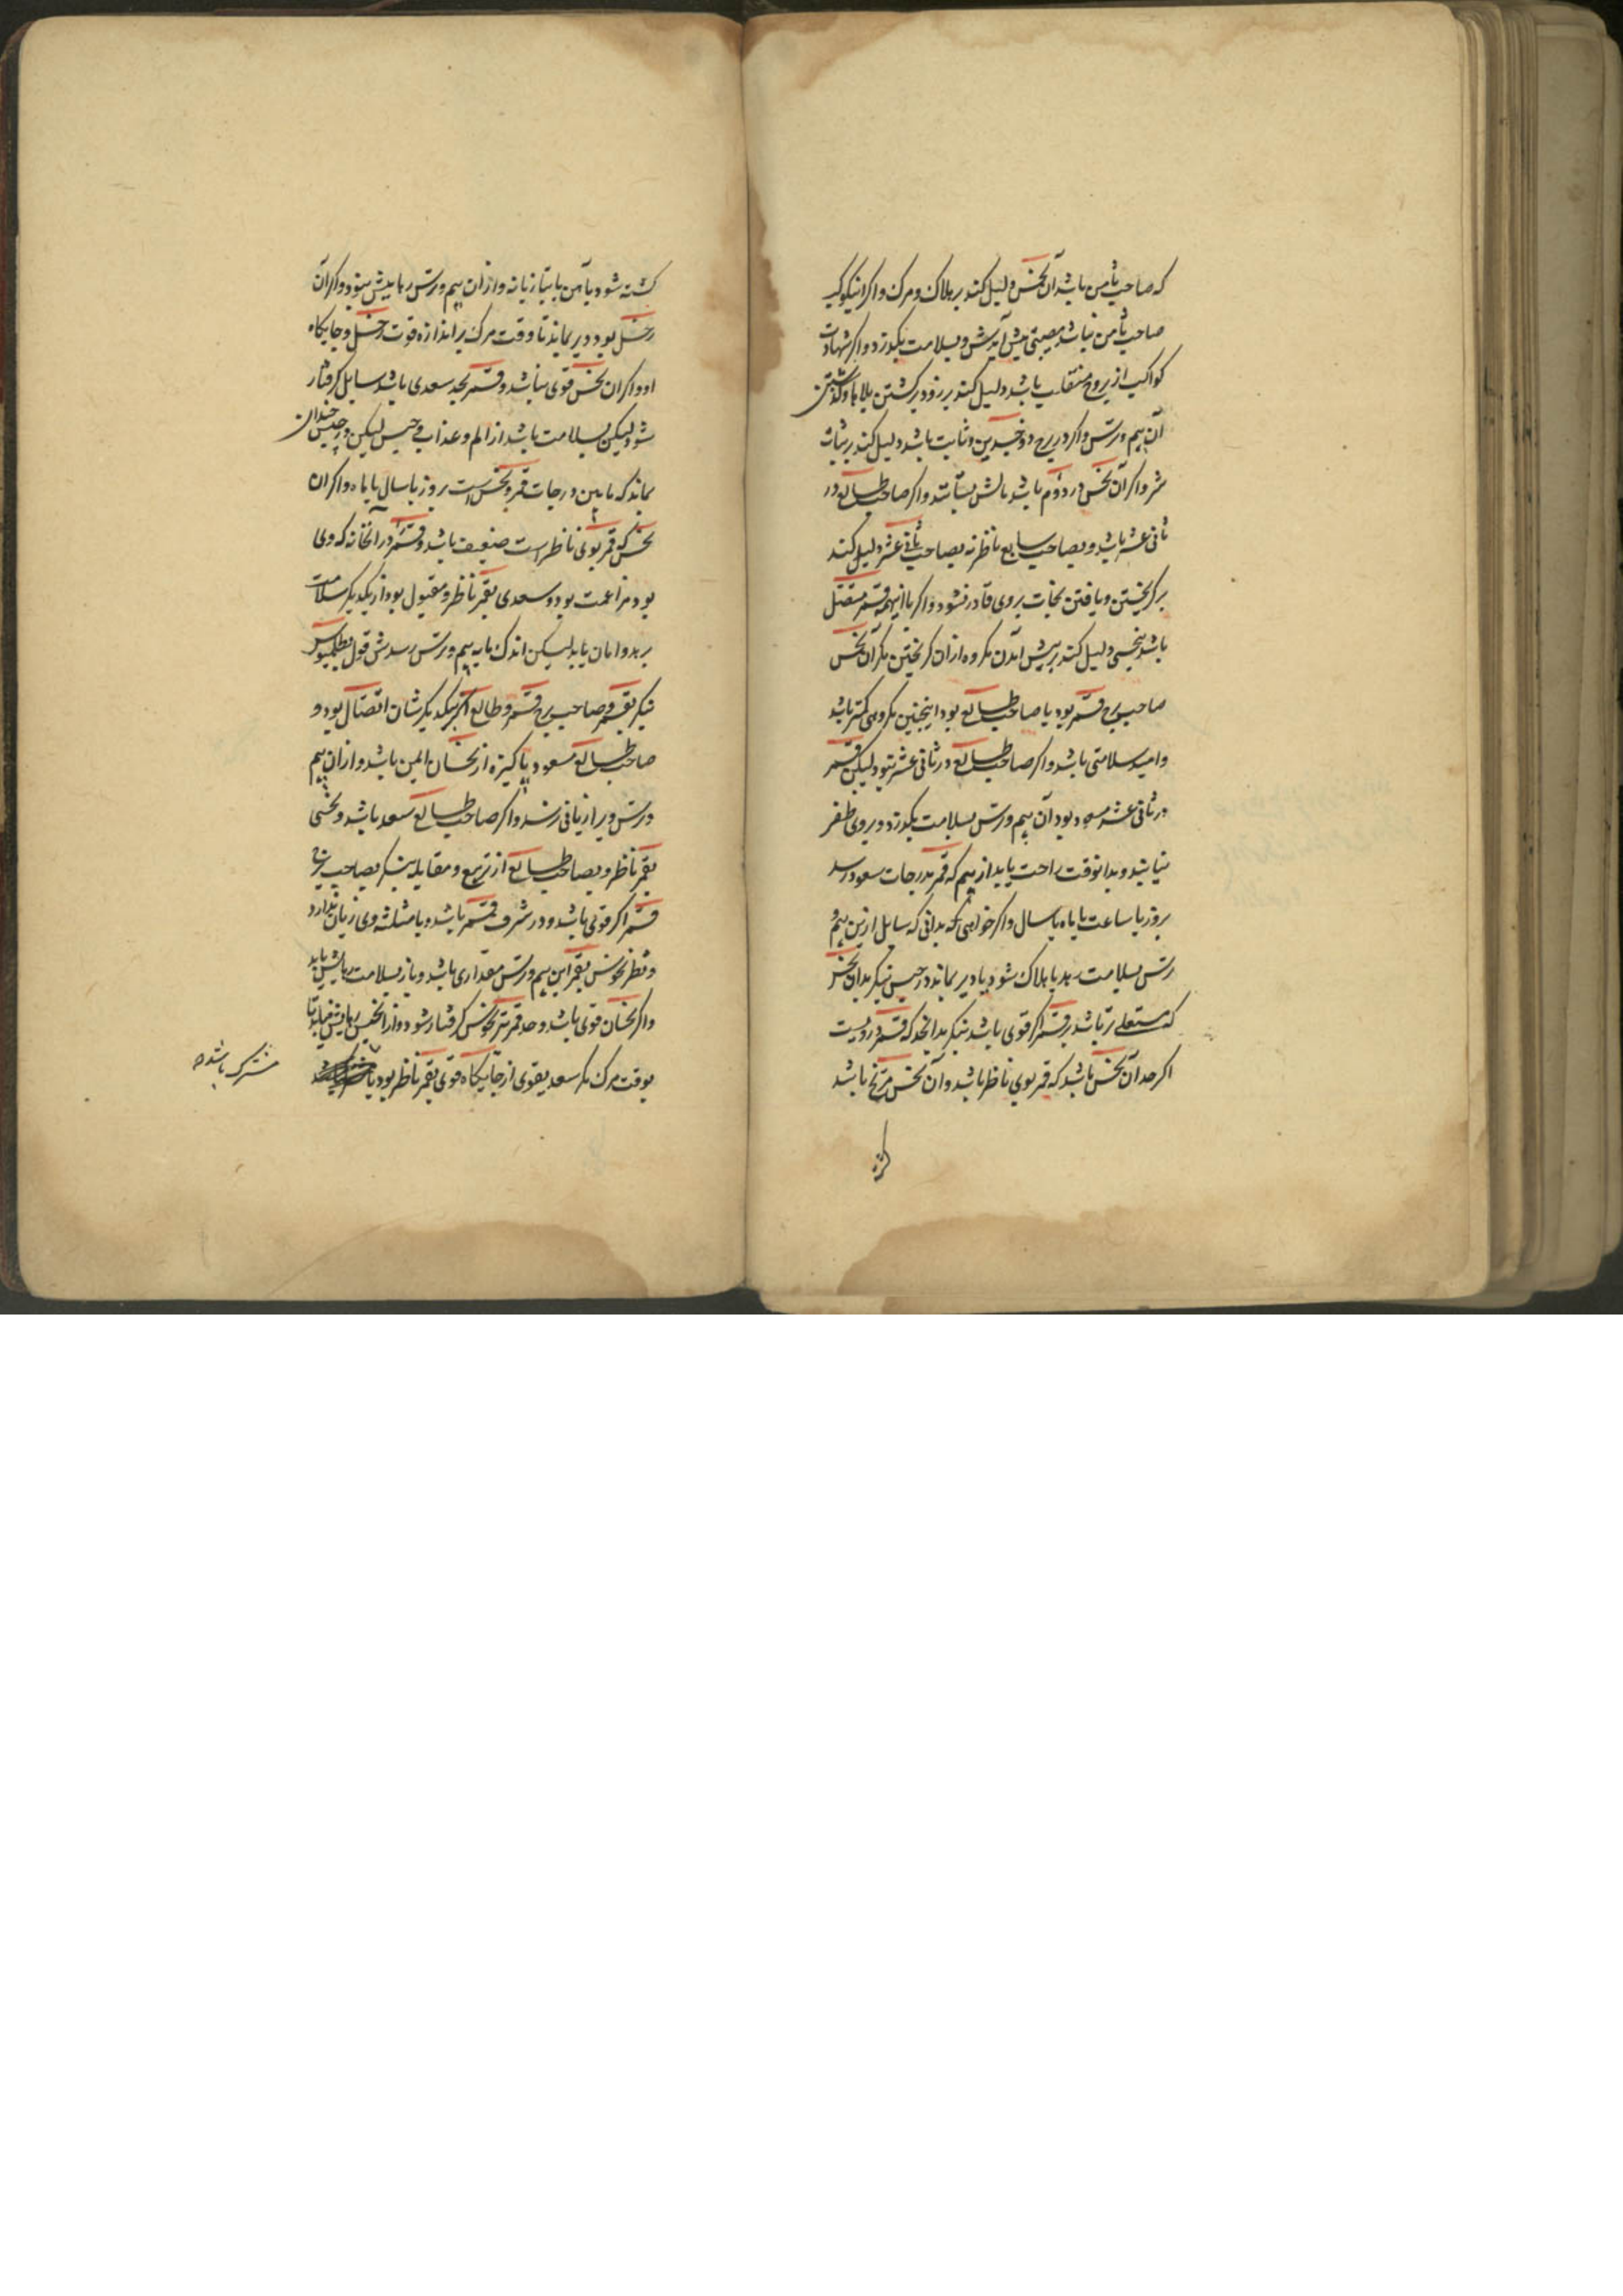 که صاحب ثامن باشد آن نحس دلیل کند بر هلاک و مرک و اکر
صاحب ثامن نباشد مصیبتی پیش آیدش و بسلامت بکذرد و اکر شهادت
کواکب از بروج منقلب باشد دلیل کند بر زود برکشتن بلاها و کذشتن
آن بیم و ترس و اکر در برج ذوجسدین و ثابت باشد دلیل کند بر ثبات
شر و اکر آن نحس در دوم باشد مالش بستانند و اکر صاحب طالع در
ثانی عشر باشد و بصاحب سابع ناظر نه بصاحب ثانی عشر دلیل کند
بر کریختن و یافتن نجات بر وی قادر نشود و اکر با اینهمه قمر متصل
باشد بنحسی دلیل کند بر پیش آمدن مکروه از آن کریختن مکر آن نحس
صاحب برج قمر بود یا صاحب طالع بود اینچنین مکروهی کمتر باشد
و امید سلامتی باشد و اکر صاحب طالع در ثانی عشر نبود لیکن قمر
در ثانی عشر مسعود بود آن بیم و ترس بسلامت بکذرد و بر وی ظفر
نیابند و بدانوقت راحت یابد از بیم که قمر بدرجات سعود رسد
بروز یا ساعت یا ماه یا سال و اکر خواهی که بدانی که سایل ازین بیم و
ترس بسلامت رهد یا هلاک شود یا دیر بماند در حبس بنکر بدان نحس
که مستعلی تر باشد بر قمر اکر قوی باشد بنکر بدان حد که قمر درویست
اکر حد آن نحس باشد که قمر بوی ناظر باشد و آن نحس مریخ باشد
کشته
کشته شود بآهن یا بتازیانه و از ان بیم و ترس رهایش نبود و اکر آن
زحل بود دیر بماند تا وقت مرک بر اندازه قوت زحل و جایکاه
او و اکر ان نحس قوی نباشد و قمر بحد سعدی باشد سایل کرفتار
شود لیکن بسلامت باشد از الم و عذاب و حبس لیکن در حبس چندان
بماند که مابین درجات قمر و نحس است بروز یا سال یا ماه و اکر ان
نحس که قمر بوی ناظر است ضعیف باشد و قمر در آنخانه که وی
بود مزاعمت بود و سعدی بقمر ناظر و مقبول بود از یکدیکر سلامت
برهد و امان یابد لیکن اندک مایه بیم و ترس رسدش قول بطلمیوس
بنکر بقمر و صاحب برج قمر و طالع اکر بیکدیکرشان اتصال بود و
صاحب طالع مسعود و پاکیزه از نحسان ایمن باشد و از ان بیم
و ترس ویرا زیانی نرسد و اکر صاحب طالع سعد باشد و نحسی
بقمر ناظر و بصاحب طالع از تربیع و مقابله بنکر بصاحب برج
قمر اکر قوی باشد و در شرف قمر باشد و یا مثلثه وی زیان ندارد
و نظر نحوس بقمر این بیم و ترس مقداری باشد و باز بسلامت رهایش یابد
و اکر نحسان قوی باشد و حد قمر نیز نحوس کرفتار شود و از ان حبس رهایش نیابد تا
بوقت مرک مکر سعد بقوی از جایکاه قوی بقمر ناظر بود یا
مشترک باشد